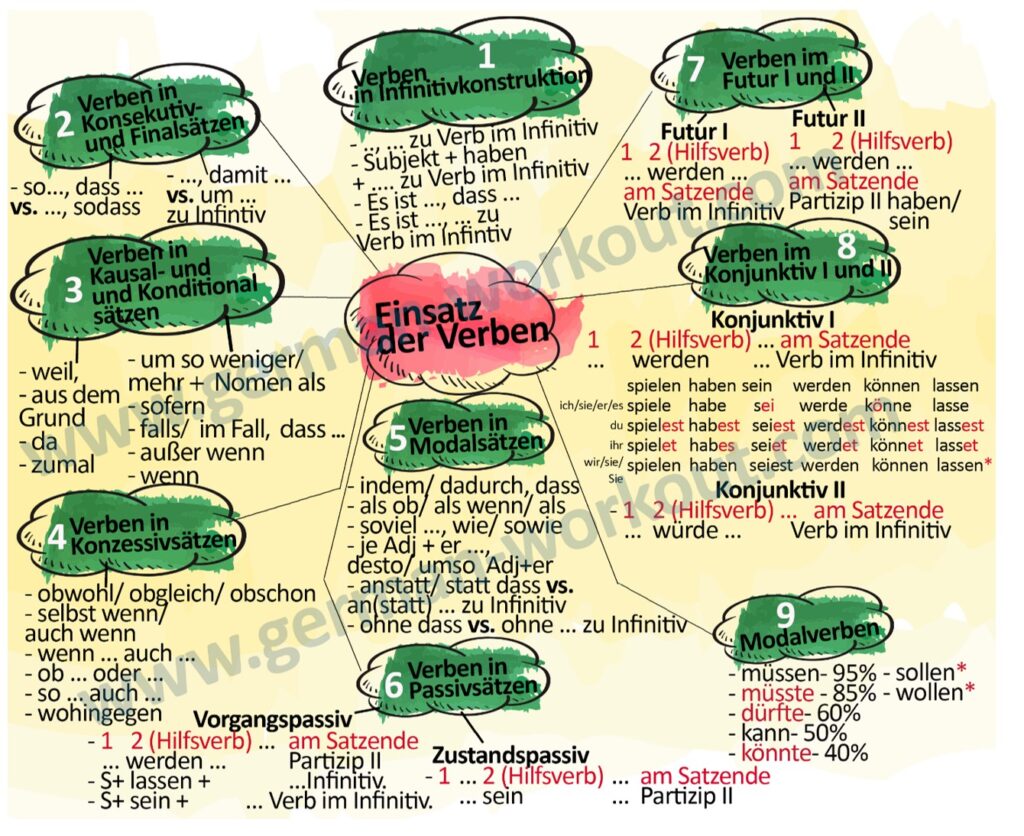 Einsatz
der Verben
1
Verben
in Infinitivkonstruktion
- ... ... zu Verb im Infinitiv
- Subjekt + haben
+ .... zu Verb im Infinitiv
- Es ist ..., dass ...
- Es ist ..., ... zu
Verb im Infintiv
2
Verben in
Konsekutiv-
und Finalsätzen
- so..., dass ...
vs. ..., sodass
- ..., damit ...
vs. um ...
zu Infintiv
3
Verben in
Kausal- und
und Konditional
sätzen
- weil,
- aus dem
Grund
- da
- zumal
- um so weniger/
mehr + Nomen als
- sofern
- falls/ im Fall, dass ...
- außer wenn
- wenn
4
Verben in
Konzessivsätzen
- obwohl/ obgleich/ obschon
- selbst wenn/
auch wenn
- wenn ... auch ...
- ob ... oder ...
- so ... auch ...
- wohingegen
5
Verben in
Modalsätzen
- indem/ dadurch, dass
- als ob/ als wenn/ als
- soviel ..., wie/ sowie
- je Adj + er ...,
desto/ umso Adj+er
- anstatt/ statt dass vs.
an(statt) ... zu Infinitiv
- ohne dass vs. ohne ... zu Infinitiv
6
Verben in
Passivsätzen
Vorgangspassiv
- 1 2 (Hilfsverb) ... am Satzende
... werden ... Partizip II
- S+ lassen + ...Infinitiv.
- S+ sein + ... Verb im Infinitiv.
Zustandspassiv
- 1 ... 2 (Hilfsverb) ... am Satzende
... sein ... Partizip II
7
Verben im
Futur I und II
Futur I
1 2 (Hilfsverb)
... werden ...
am Satzende
Verb im Infinitiv
Futur II
1 2 (Hilfsverb)
... werden ...
am Satzende
Partizip II haben/
sein
8
Verben im
Konjunktiv I und II
Konjunktiv I
1 2 (Hilfsverb) ... am Satzende
... werden ... Verb im Infinitiv
spielen haben sein werden können lassen
ich/sie/er/es spiele habe sei werde könne lasse
du spielest habest seiest werdest könnest lassest
ihr spielet habes seiet werdet könnet lasset
wir/sie/ spielen haben seiest werden können lassen*
Sie
Konjunktiv II
- 1 2 (Hilfsverb) ... am Satzende
... würde ... Verb im Infinitiv
9
Modalverben
- müssen- 95% - sollen*
- müsste- 85% - wollen*
- dürfte- 60%
- kann- 50%
- könnte- 40%
www.german-workout.com
www.german-workout.com